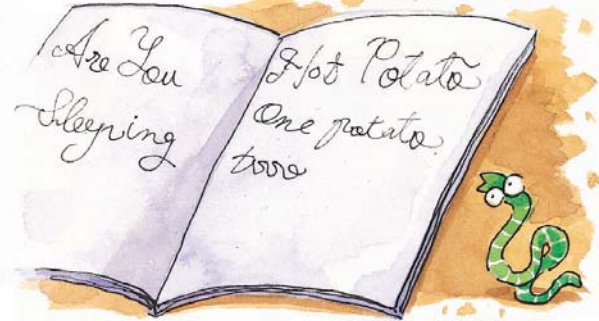 Are You
Sleeping
Hot Potato
One potato
two